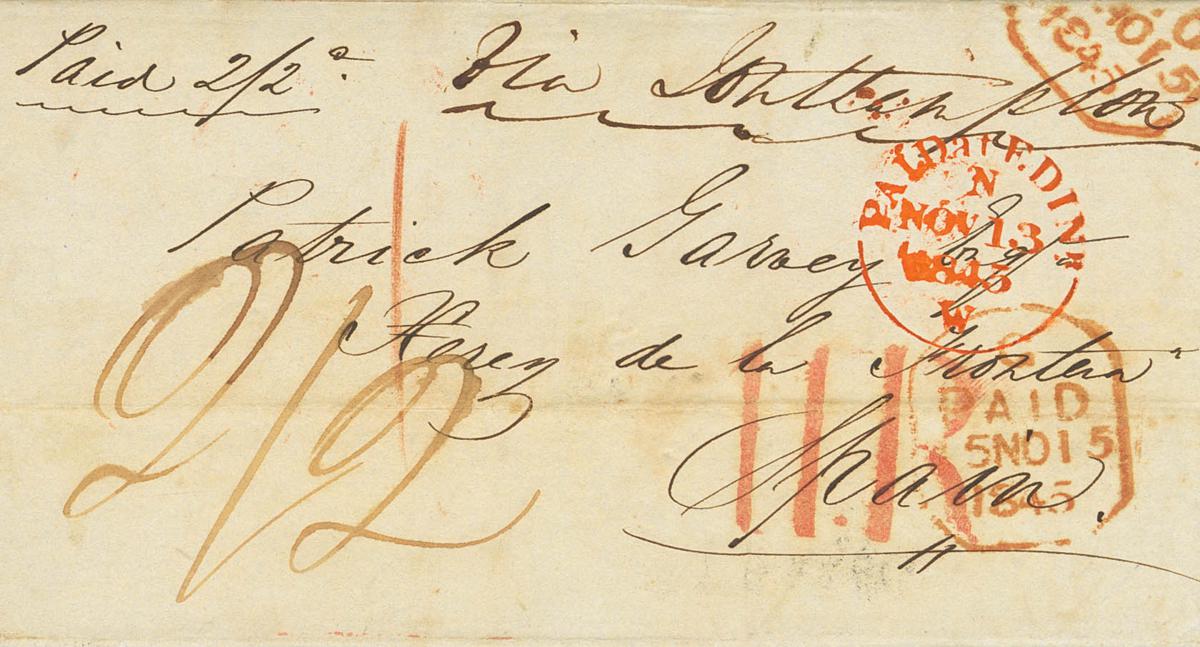 Paid 2/2d. Via Southampton
NO 15
1845
PAID at EDINR
N
NOV 13
1845
W
Patrick Garvey Esqr
Xerez de la Frontera
Spain.
2/2
PAID
5NO15
1845